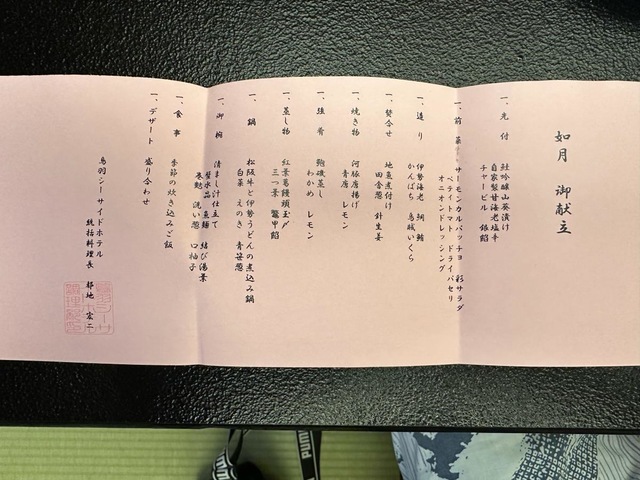 如月 御献立
一、先付
鮭吟醸山葵漬け
自家製甘海老塩辛
チャービル 銀餡
一、前菜
サーモンカルパッチョ 彩サラダ
ペティトマト ドライパセリ
オニオンドレッシング
一、造り
伊勢海老 鯛 鮪
かんぱち 烏賊いくら
一、焚合せ
地魚煮付け
田舎葱 針生姜
一、焼き物
河豚唐揚げ
青唐 レモン
一、強肴
鮑磯蒸し
わかめ レモン
一、蒸し物
紅葉葛饅頭玉〆
三つ葉 鼈甲餡
一、鍋
松阪牛と伊勢うどんの煮込み鍋
白菜 えのき 青笹葱
一、御椀
清まし汁仕立て
蟹水晶 魚麺 結び湯葉
巻麩 洗い葱 口柚子
一、食事
季節の炊き込みご飯
一、デザート
盛り合わせ
鳥羽シーサイドホテル
統括料理長 宏二
PUMA